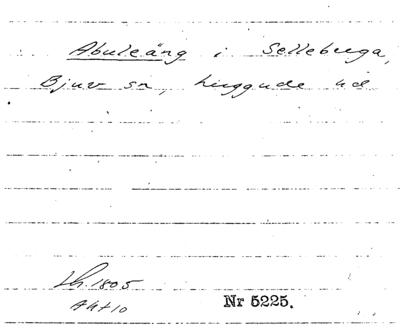 Abuleäng i Selleberga,
Bjuv sn, Luggude hd
Lh. 1805
Akt 10
Nr 5225.